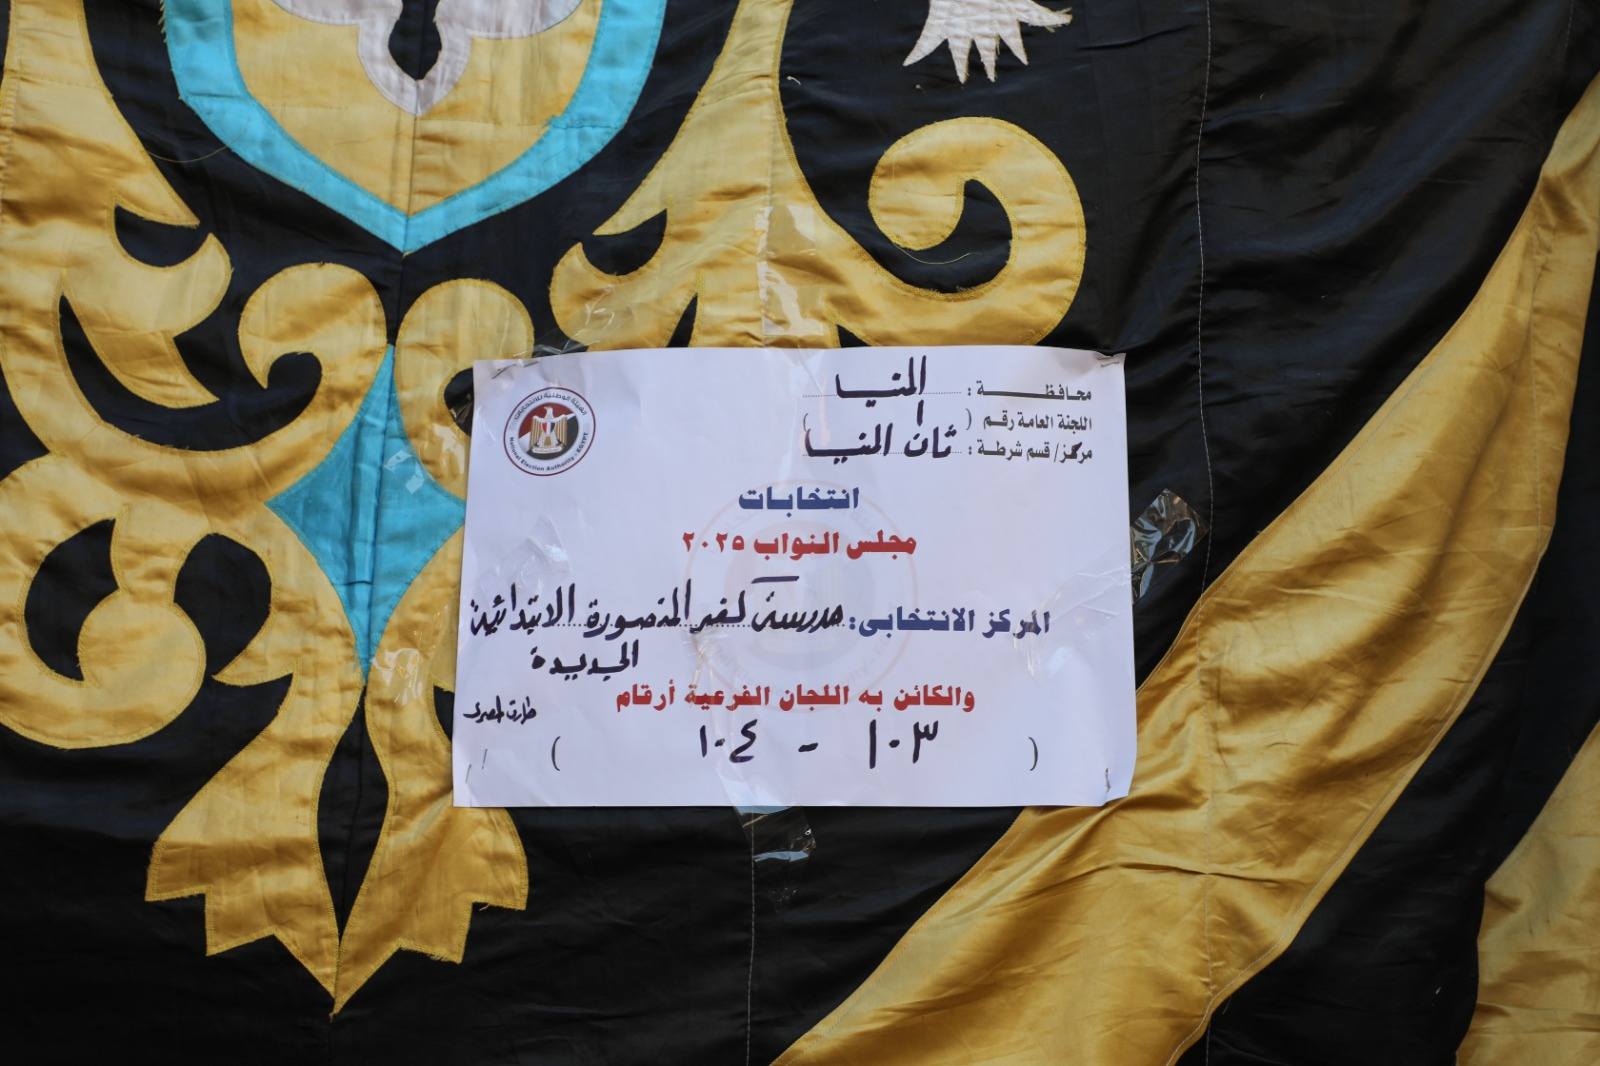 الهيئة الوطنية للانتخابات
National Election Authority - EGYPT
محافظة : المنيا
اللجنة العامة رقم ( ١ )
مركز/ قسم شرطة : ثان المنيا
انتخابات
مجلس النواب ٢٠٢٥
المركز الانتخابى : مدرسة كفر المنصورة الابتدائية
الجديدة
والكائن به اللجان الفرعية أرقام
( ١٠٣ - ١٠٤ )